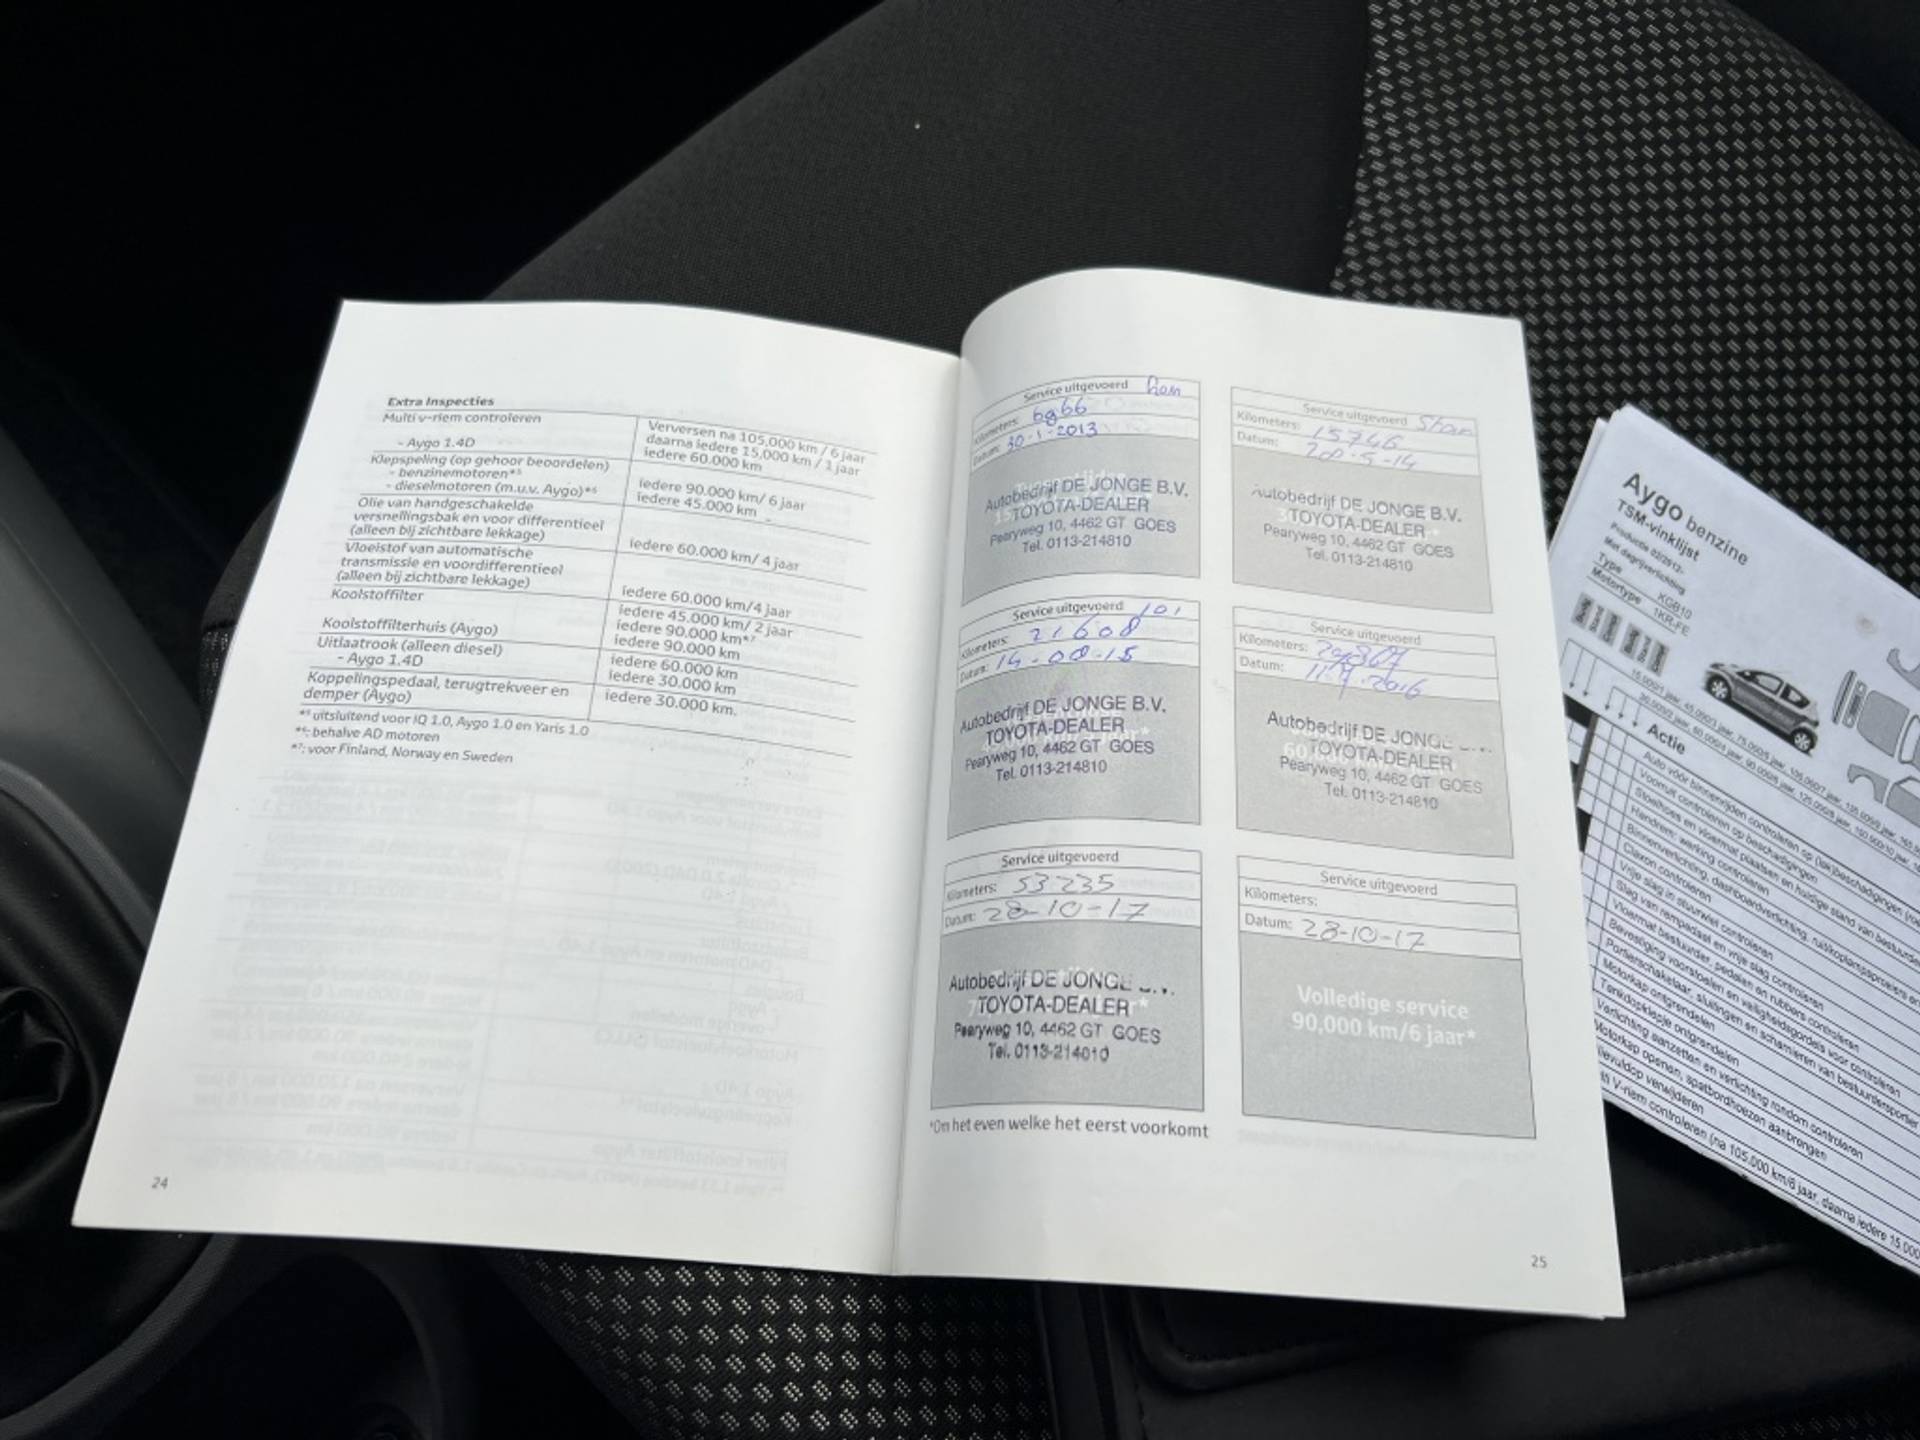 Extra Inspecties
Multi v-riem controleren
Verversen na 105,000 km / 6 jaar
daarna iedere 15,000 km / 1 jaar
- Aygo 1.4D
iedere 60.000 km
Klepspeling (op gehoor beoordelen)
- benzinemotoren*5
iedere 90.000 km/ 6 jaar
- dieselmotoren (m.u.v. Aygo)*6
iedere 45.000 km
Olie van handgeschakelde
versnellingsbak en voor differentieel
(alleen bij zichtbare lekkage)
iedere 60.000 km/ 4 jaar
Vloeistof van automatische
transmissie en voordifferentieel
(alleen bij zichtbare lekkage)
iedere 60.000 km/4 jaar
Koolstoffilter
iedere 45.000 km/ 2 jaar
iedere 90.000 km*7
Koolstoffilterhuis (Aygo)
iedere 90.000 km
Uitlaatrook (alleen diesel)
iedere 60.000 km
- Aygo 1.4D
iedere 30.000 km
Koppelingspedaal, terugtrekveer en
demper (Aygo)
iedere 30.000 km.
*5 uitsluitend voor iQ 1.0, Aygo 1.0 en Yaris 1.0
*6: behalve AD motoren
*7: voor Finland, Norway en Sweden
24
Service uitgevoerd
Kilometers:
Datum: 30-1-2013
Autobedrijf DE JONGE B.V.
TOYOTA-DEALER
Pearyweg 10, 4462 GT GOES
Tel. 0113-214810
Service uitgevoerd
Kilometers: 15746
Datum: 28-5-14
Autobedrijf DE JONGE B.V.
TOYOTA-DEALER
Pearyweg 10, 4462 GT GOES
Tel. 0113-214810
Service uitgevoerd
Kilometers: 21608
Datum: 14-08-15
Autobedrijf DE JONGE B.V.
TOYOTA-DEALER
Pearyweg 10, 4462 GT GOES
Tel. 0113-214810
Service uitgevoerd
Kilometers:
Datum:
Autobedrijf DE JONGE
TOYOTA-DEALER
Pearyweg 10, 4462 GT GOES
Tel. 0113-214810
Service uitgevoerd
Kilometers: 53235
Datum: 28-10-17
Autobedrijf DE JONGE
TOYOTA-DEALER
Pearyweg 10, 4462 GT GOES
Tel. 0113-214810
Service uitgevoerd
Kilometers:
Datum: 28-10-17
Volledige service
90,000 km/6 jaar*
*Om het even welke het eerst voorkomt
25
Aygo benzine
TSM-vinklijst
Productie 02/2012-
Met dagrijverlichting
Type XGB10
Motortype 1KR-FE
Actie
Auto vóór binnenrijden controleren op (lak)beschadigingen
Voorruit controleren op beschadigingen
Stoelhoes en vloermat plaatsen en huidige stand van bestuurders
Handrem: werking controleren
Binnenverlichting, dashboardverlichting, ruitkoplampsproeiers en
Claxon controleren
Vrije slag in stuurwiel controleren
Slag van rempedaal en vrije slag controleren
Vloermat bestuurder, pedalen en rubbers controleren
Bevestiging voorstoelen en veiligheidsgordels voor controleren
Portierschakelaar, sluitingen en scharnieren van bestuurdersportier
Motorkap ontgrendelen
Tankdopklepje ontgrendelen
Verlichting aanzetten en verlichting rondom controleren
Motorkap openen, spatbordhoezen aanbrengen
Olievuldop verwijderen
V-riem controleren (na 105.000 km/6 jaar, daarna iedere 15.000